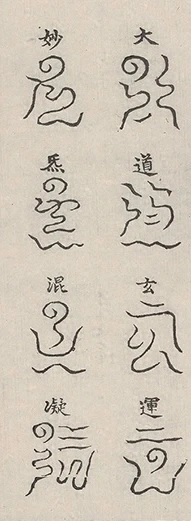 大道玄運
妙炁混凝